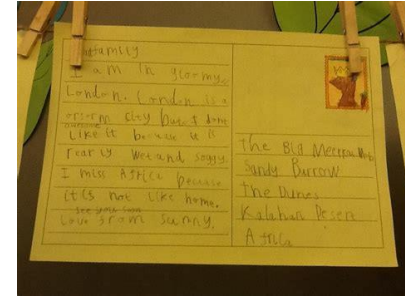 family
I am in gloomy
London. London is a
city but I dont
Like it because it is
realy wet and soggy.
I miss Africa because
it is not like home.
see you soon
Love from sunny.
The Big Meerkat
Sandy Burrow
The Dunes
Kalahari Desert
Africa